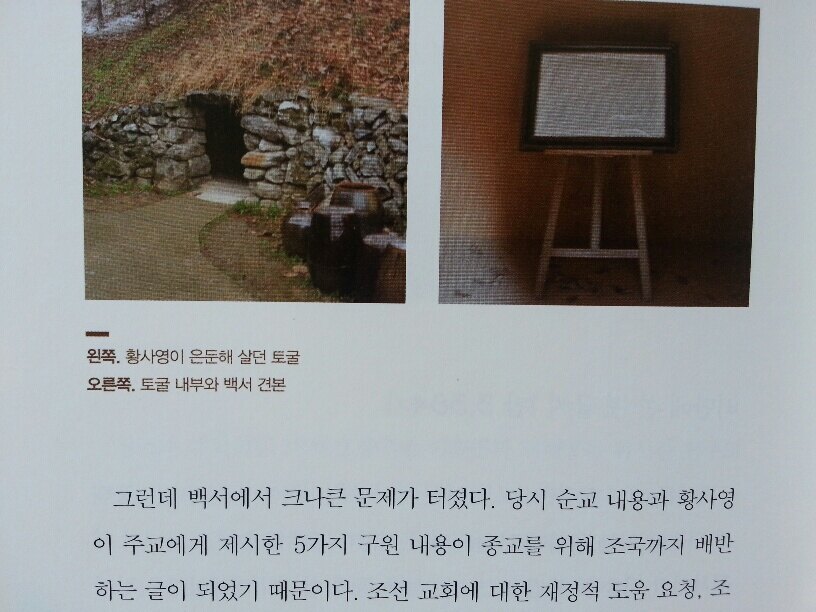 왼쪽. 황사영이 은둔해 살던 토굴
오른쪽. 토굴 내부와 백서 견본
그런데 백서에서 크나큰 문제가 터졌다. 당시 순교 내용과 황사영
이 주교에게 제시한 5가지 구원 내용이 종교를 위해 조국까지 배반
하는 글이 되었기 때문이다. 조선 교회에 대한 재정적 도움 요청, 조